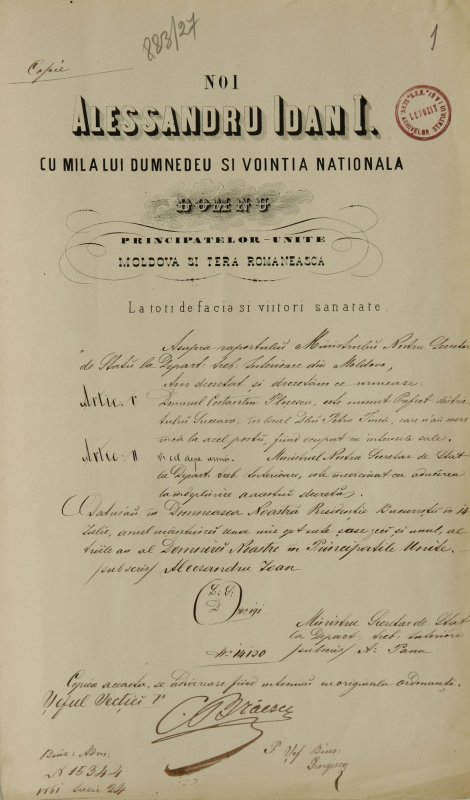 883/27
1
Copie
NOI
ALESSANDRU IOAN I.
CU MILA LUI DUMNEDEU SI VOINTIA NATIONALA
DOMNU
PRINCIPATELOR-UNITE
MOLDOVA SI TERA ROMANEASCA
La toti de facia si viitori sanatate.
Asupra raportului Ministrului Nostru Secretar
de Statu la Depart: treb. Interioare din Moldova,
Am decretat și decretăm ce urmeaze:
Artic. I
Domnul Costantin Florescu, este numit Prefect distric-
tului Suceava, în locul Dlui Petru
la acel postu, fiind ocupat cu interesele sale.
Artic: II
Ministrul Nostru Secretar de Stat
la Depart. treb. Interioare, este însercinat cu aducerea
la împlinire acestui decretu.
Datusau în Domneasca Noastră Residenție București în 14
Iulie, anul mântuirei una mie opt sute șase zeci și unul, al
triile an al Domnirii Noastre în Principatile Unite.
subscris/ Alecsandru Ioan
L. S.
D
No 14130
Ministru Secretar de Stat
la Depart. treb. Interioare
subscris/ A: Panu
Copiea aceasta, se adivereaze fiind întocmai cu originala ordonanță.
Șeful Secției I
P. Șef Biur.
Biur: Adm.
N 15344
1861 Iulie 24